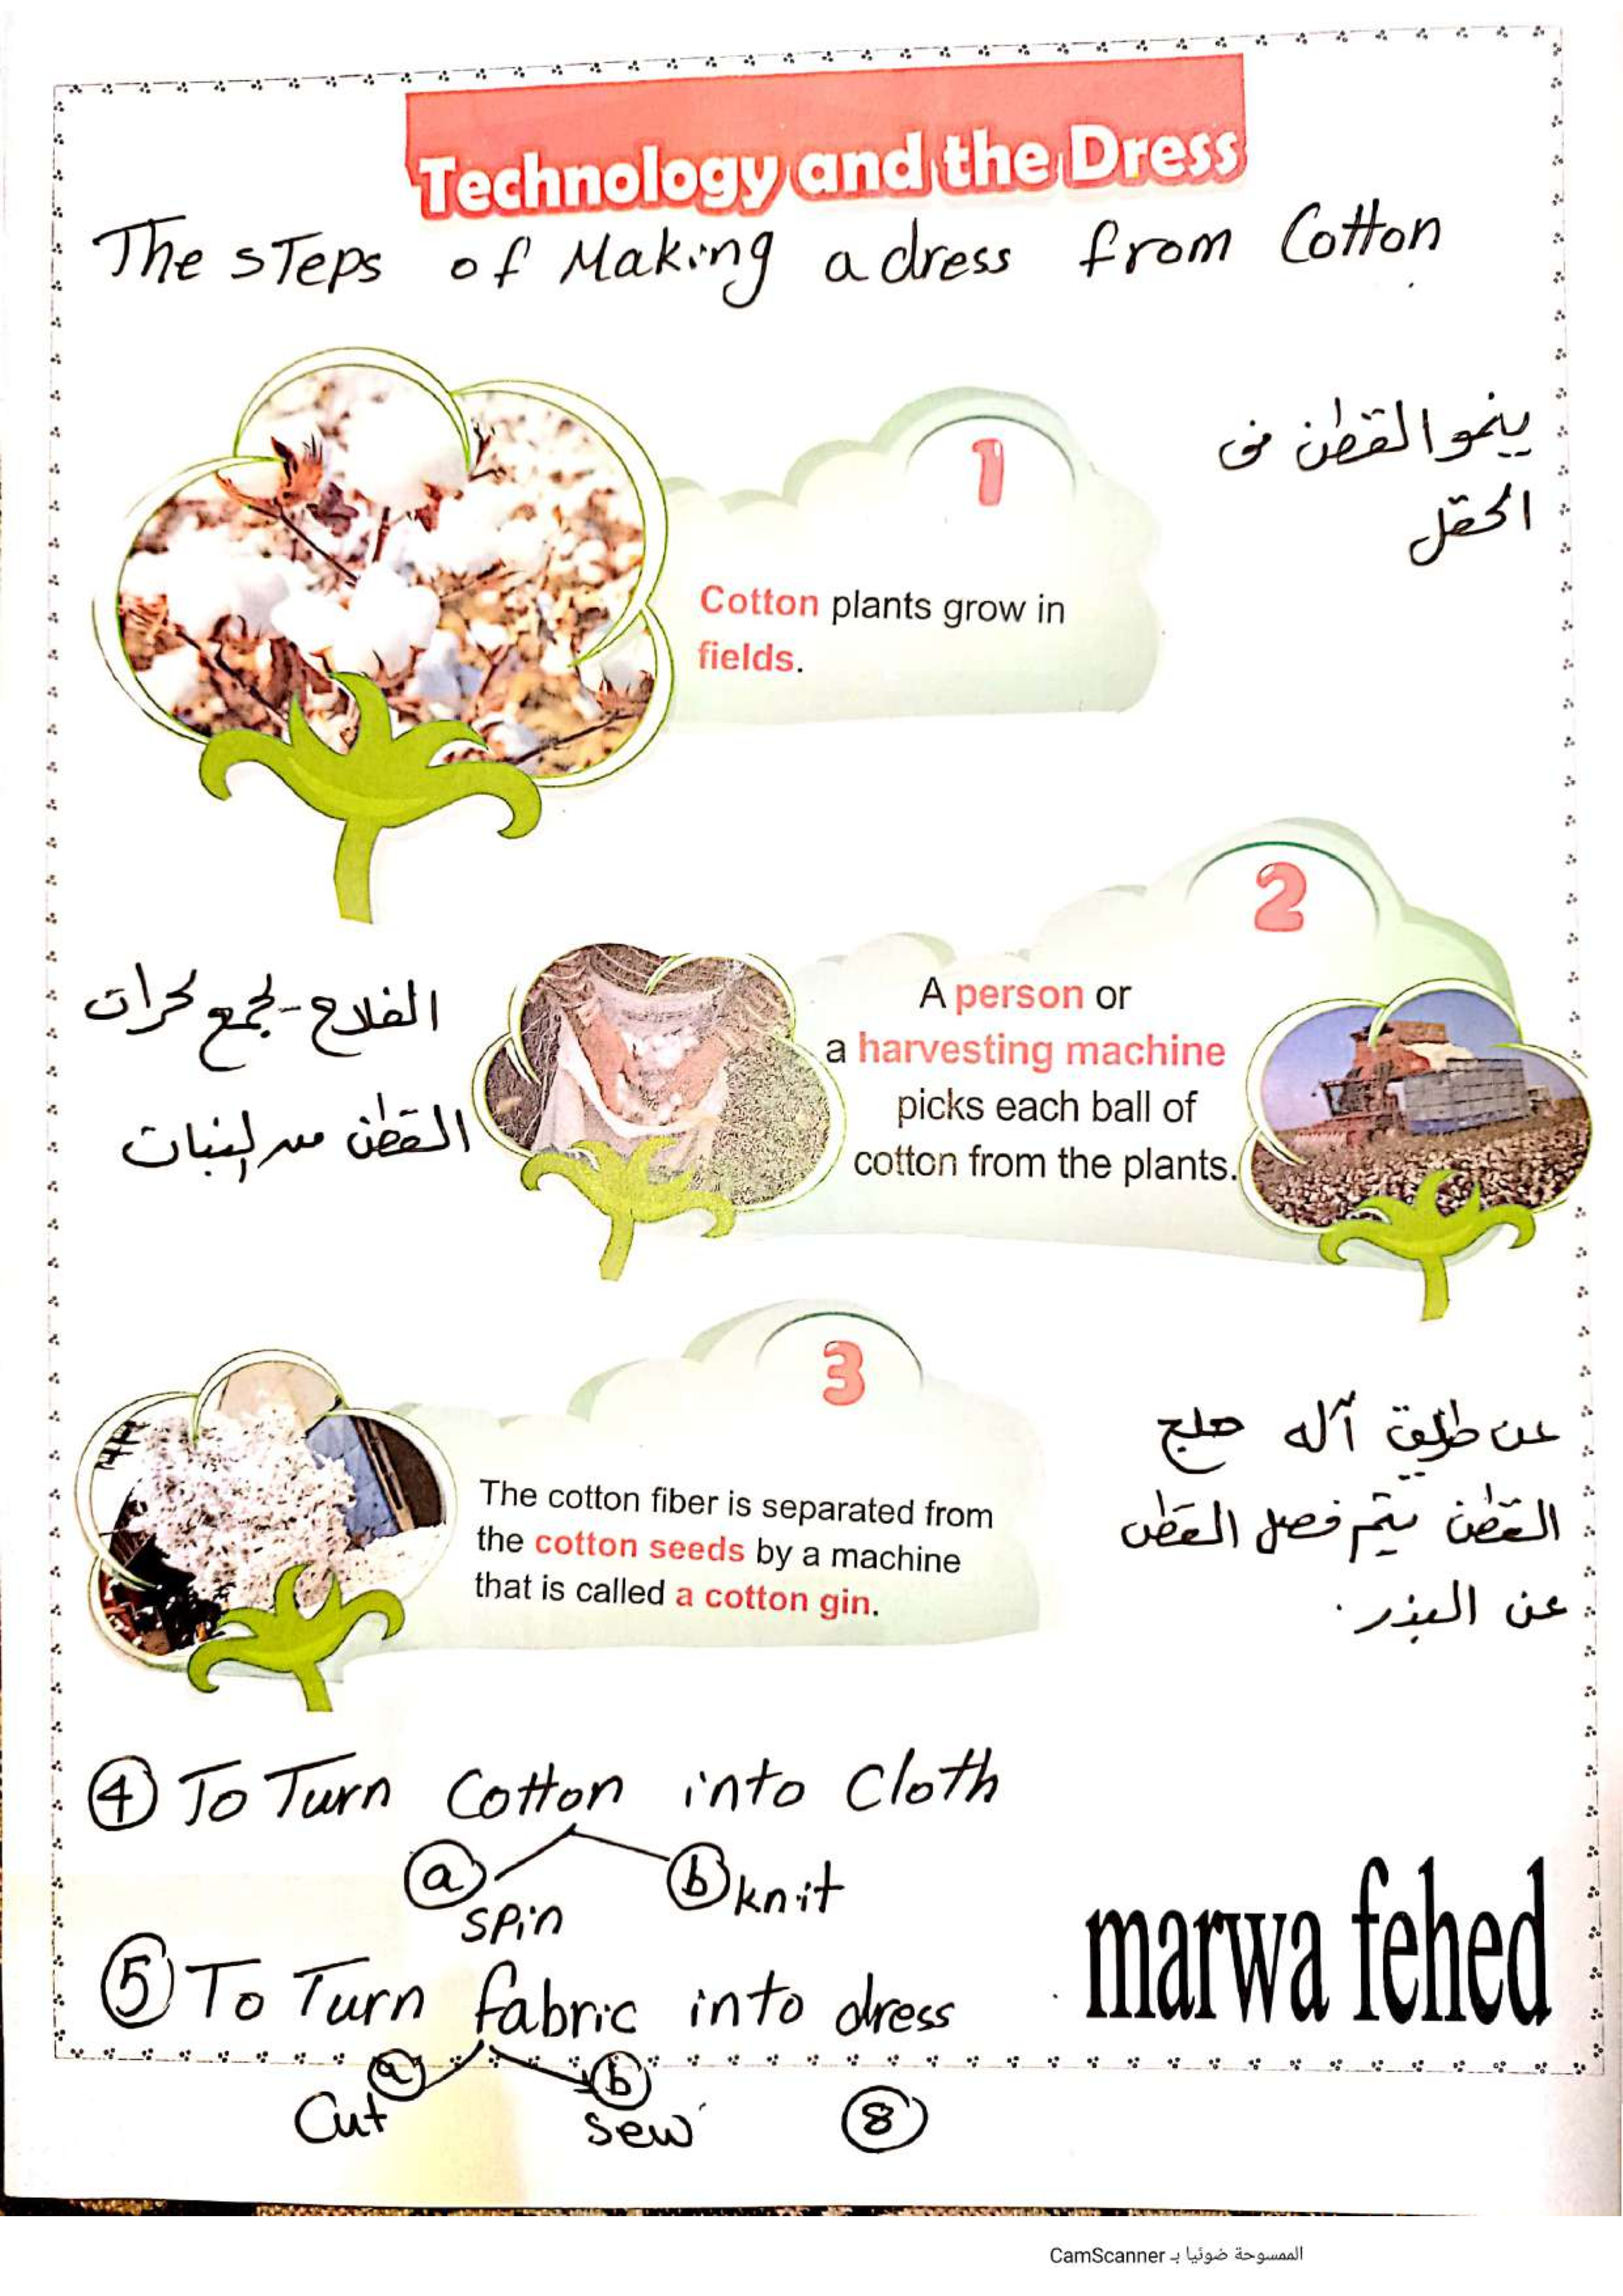 Technology and the Dress
The steps of Making a dress from Cotton
1
ينمو القطن فى
الحقل
Cotton plants grow in
fields.
2
الفلاح يجمع كرات
القطن من النبات
A person or
a harvesting machine
picks each ball of
cotton from the plants.
3
The cotton fiber is separated from
the cotton seeds by a machine
that is called a cotton gin.
عن طريق آله حلج
القطن يتم فصل القطن
عن البذر.
4 To Turn Cotton into Cloth
a spin
b knit
5 To Turn fabric into dress
a Cut
b sew
marwa fehed
8
الممسوحة ضوئيا بـ CamScanner